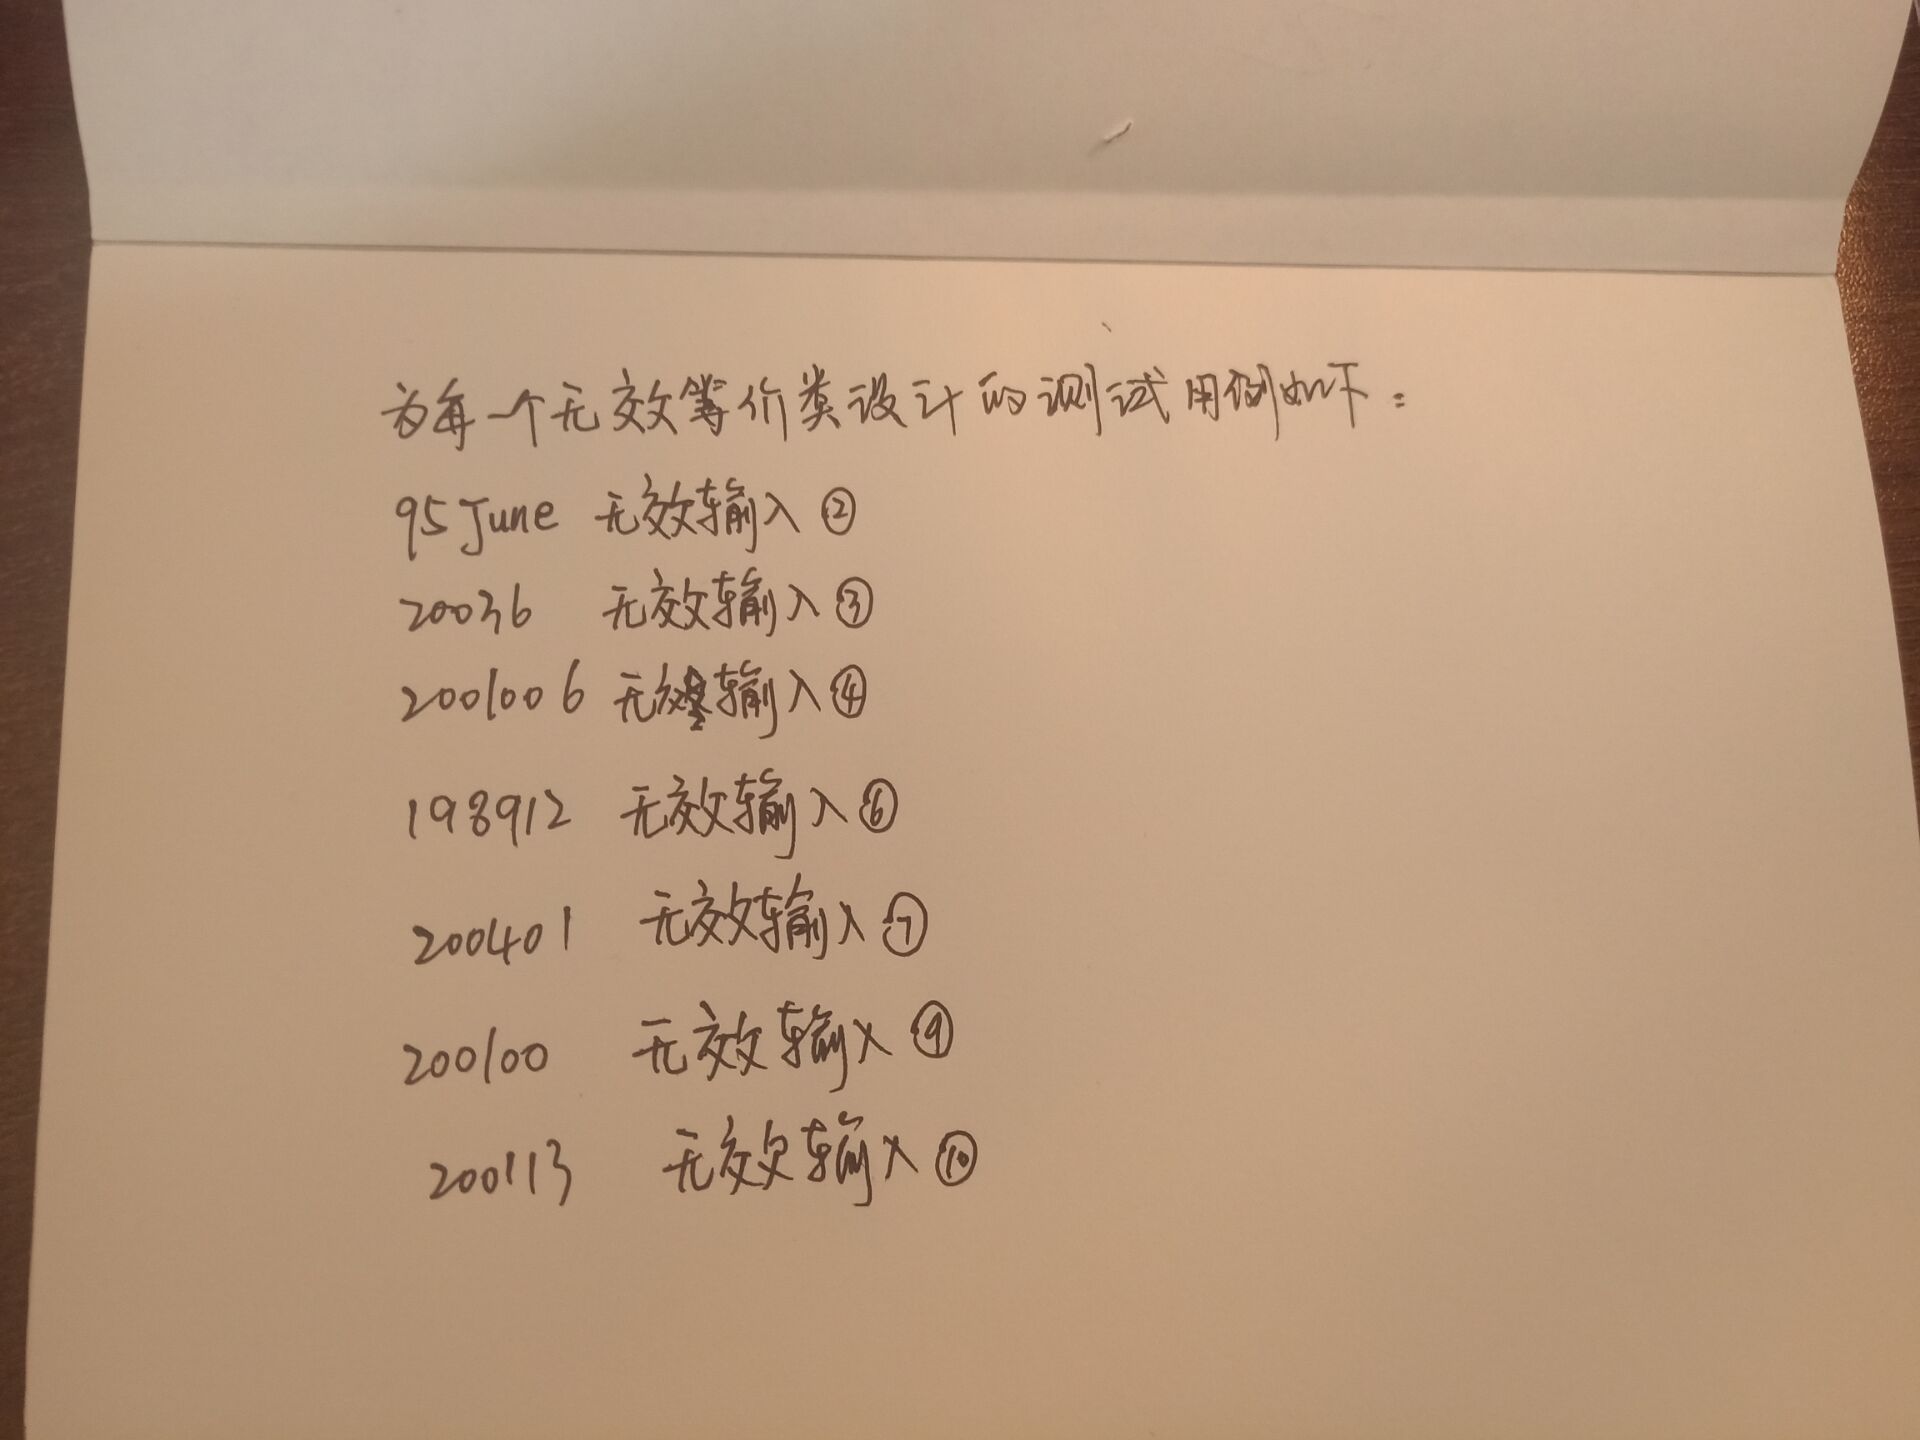 为每一个无效等价类设计的测试用例如下：
95June 无效输入②
20036 无效输入③
2001006 无效输入④
198912 无效输入⑥
200401 无效输入⑦
200100 无效输入⑨
200113 无效输入⑩